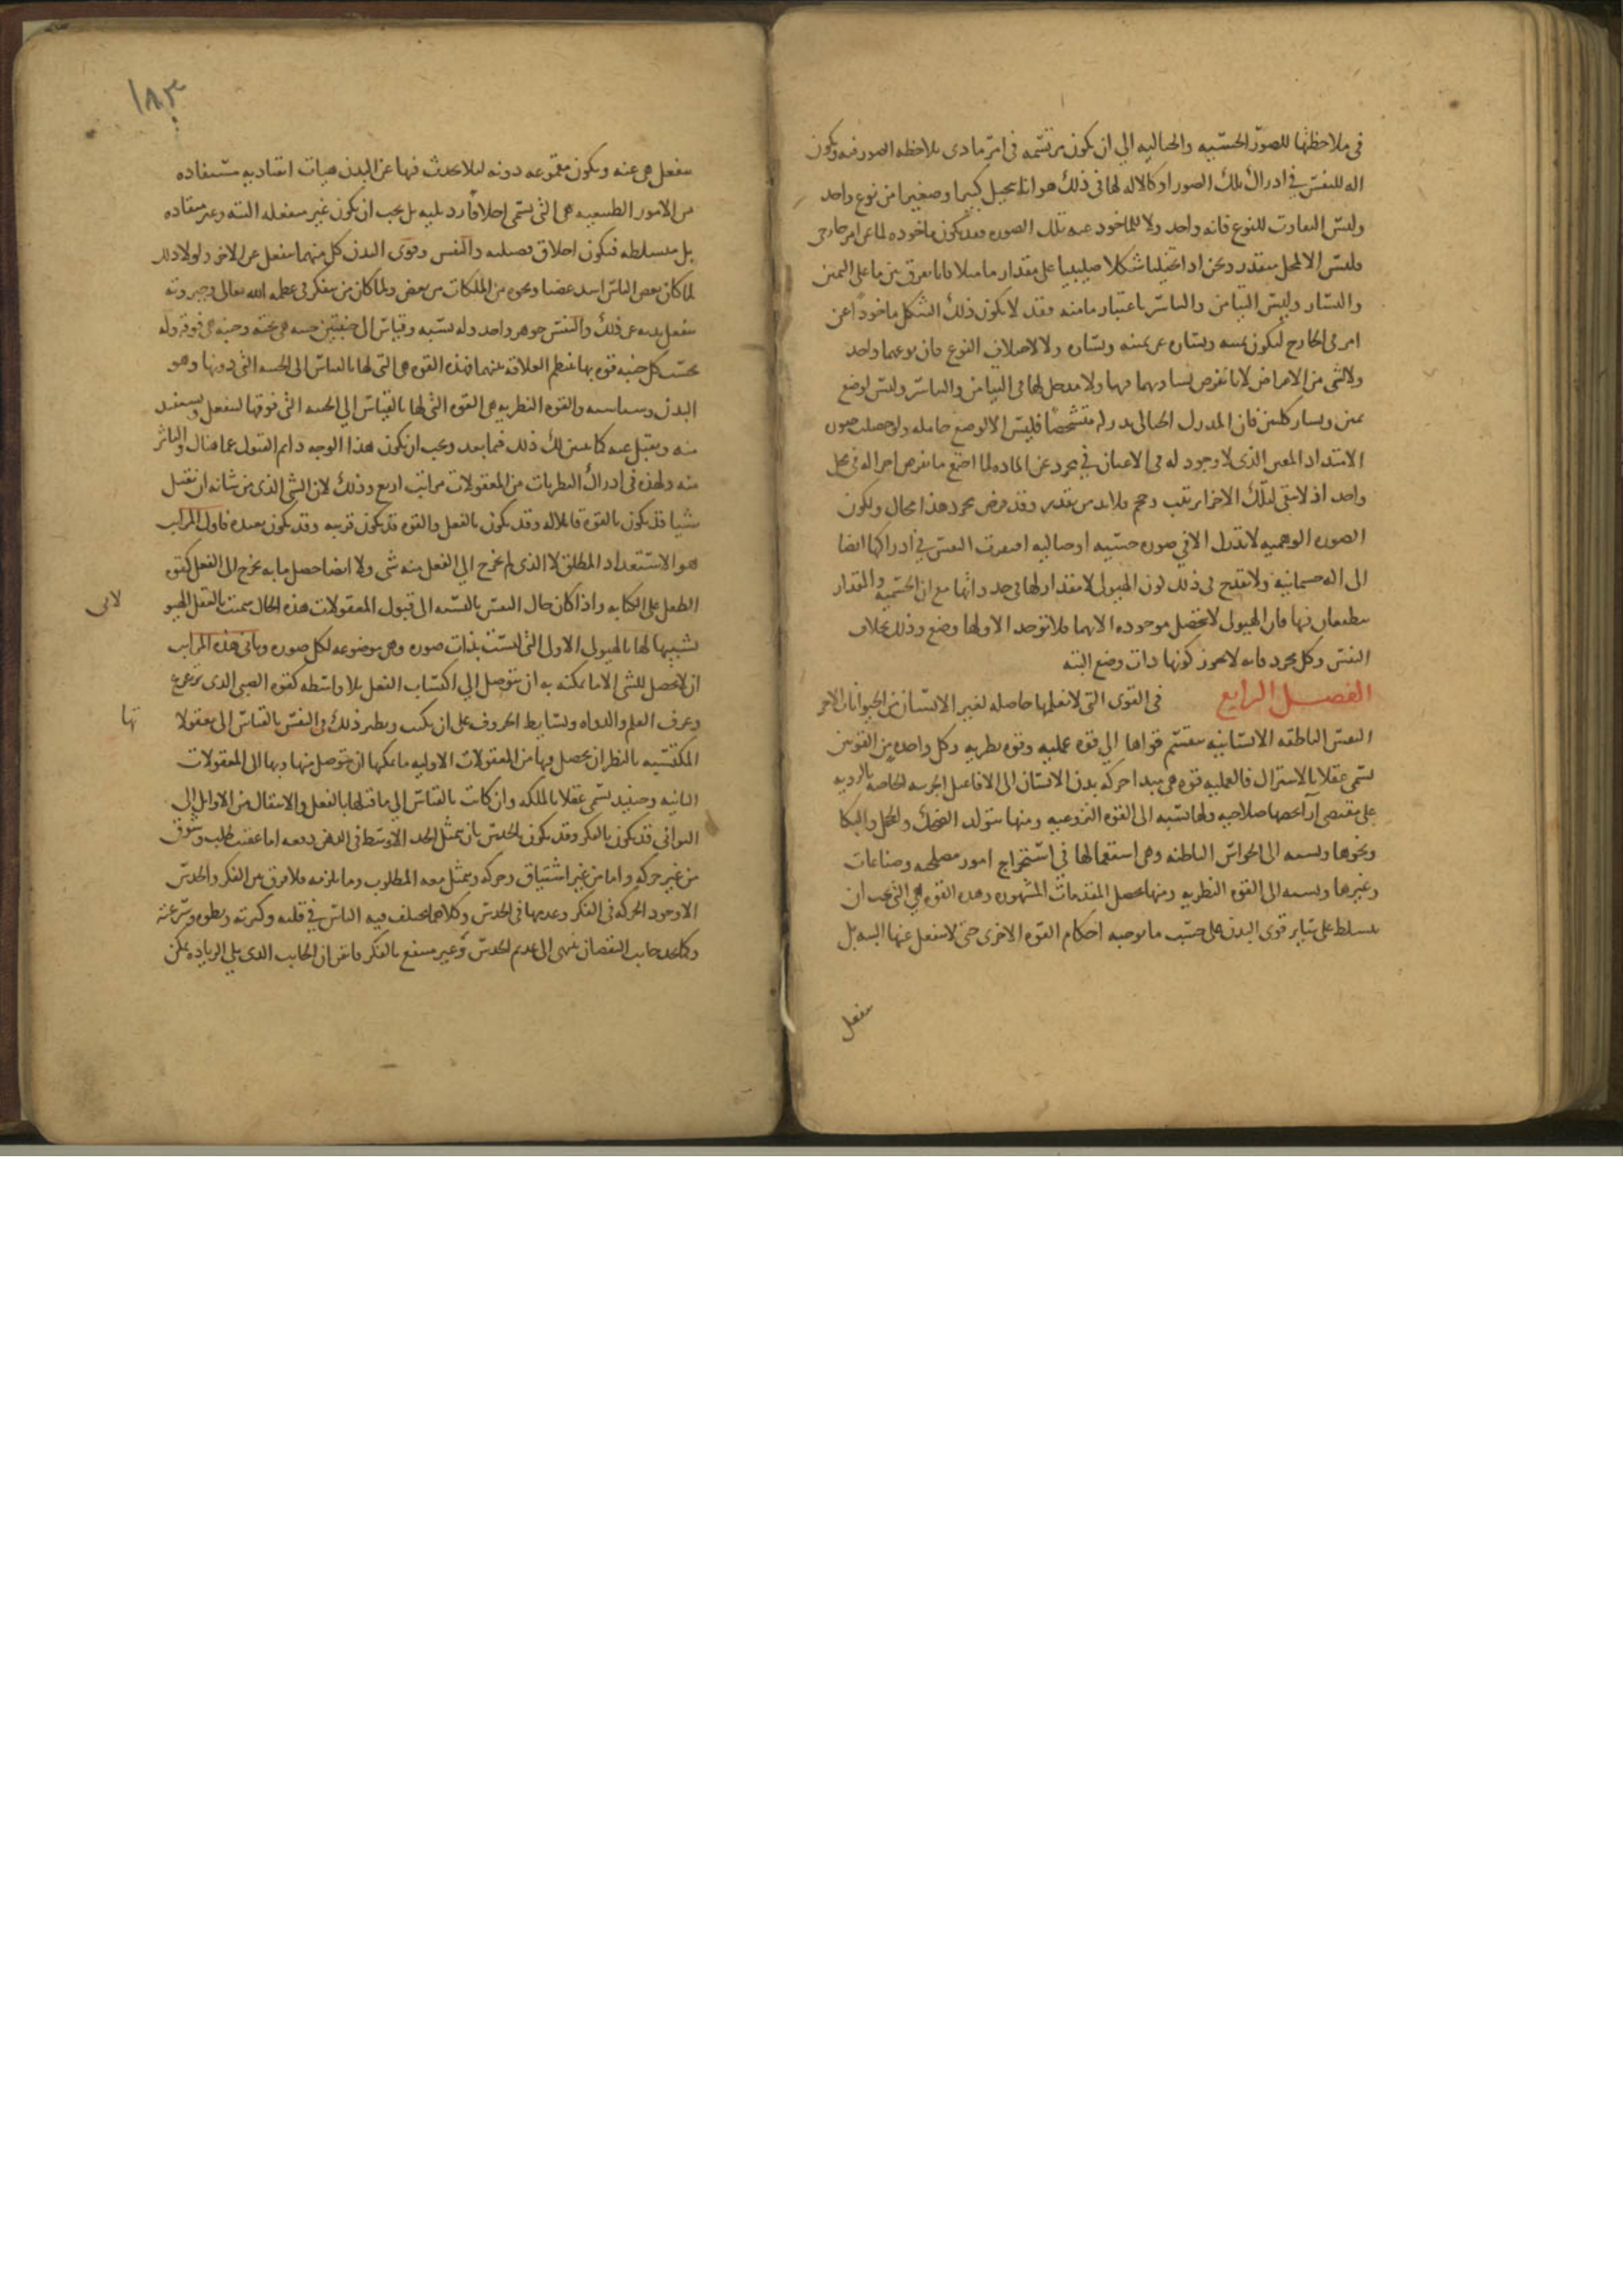 في ملاحظتها للصور الحسية والخيالية الي ان يكون مرتسمة في امر مادى بملاحظة الصور فيه ويكون
اله للنفس في ادراك تلك الصور او كالاله لها في ذلك هو انا نتخيل كبيرا وصغيرا من نوع واحد
وليس التفاوت للنوع فانه واحد ولا للماخوذ عنه تلك الصوره فقد يكون ماخوذه لا عن امر خارجي
فليس الا لمحل متقدر ونحن اذا تخيلنا شكلا صليبيا على مقدار ما مثلا فانا نفرق بين ما على اليمين
واليسار وليس التيامن والتياسر باعتبار ما منه فقد لا يكون ذلك الشكل ماخوذا عن
امر في الخارج ليكون يمينه ويساره عن يمينه ويساره ولا لاختلاف النوع فان نوعهما واحد
ولا لشي من الاعراض لانا نفرض تساويهما فيها ولا مدخل لها في التيامن والتياسر وليس لوضع
يمين ويسار كليين فان المدرك الخيالى يدرك متشخصا فليس الا لوضع حامله ولو حصلت صورة
الامتداد المعين الذى لا وجود له فى الاعيان في مجرد عن الماده لما اجتمع ما نفرض اجزا له في محل
واحد اذ لا يبقى لتلك الاجزا ترتب وحجم فلا بد من تقدير وقد فرض مجرد هذا محال ولكون
الصورة الوهمية لا تدرك الا في صوره حسية او خياليه افتقرت النفس في ادراكها ايضا
الى اله جسمانية ولا يقدح في ذلك كون الهيولى لا مقدار لها في حد ذاتها مع ان الجسمية والمقدار
ينطبعان فيها فان الهيولى لا تحصل موجوده الا بهما فلا توجد الا ولها وضع وذلك بخلاف
النفس وكل مجرد فانه لا يجوز كونها ذات وضع البتة
الفصل الرابع في القوى التي لا نعلمها حاصله لغير الانسان من الحيوانات الاخر
النفس الناطقه الانسانيه تنقسم قواها الي قوه عمليه وقوه نظريه وكل واحده من القوتين
تسمى عقلا بالاشتراك فالعمليه قوه هي مبدا حركة بدن الانسان الى الافاعيل الجزئيه الخاصه بالرويه
على مقتضى آرا تخصها صلاحيه ولها نسبه الى القوه النزوعيه ومنها يتولد الضحك والخجل والبكا
ونحوها ونسبه الى الحواس الباطنه وهي استعمالها في استخراج امور مصلحيه وصناعات
وغيرها ونسبه الى القوه النظريه ومنها تحصل المقدمات المشهوره وهذه القوه هي التي يجب ان
تتسلط على ساير قوى البدن على حسب ما توجبه احكام القوه الاخرى حتى لا تنفعل عنها البته بل
تنفعل
١٨٣
تنفعل هي عنه ويكون مقموعه دونه لئلا يحدث فيها عن البدن هيات انقياديه مستفاده
من الامور الطبيعيه هي التي تسمى اخلاقا رديليه بل يجب ان يكون غير منفعله البته وغير منقاده
بل متسلطه فتكون اخلاق فضيليه والنفس وقوى البدن كل منهما ينفعل عن الاخر ولولا ذلك
لما كان بعض الناس اشد غضبا ونحوه من الملكات من بعض ولما كان من يتفكر في عظمة الله تعالى وجبروته
ينفعل بدنه عن ذلك والنفس جوهر واحد وله نسبه وقياس الى جنبتين جنبه هي تحته وجنبه هي فوقه وله
بحسب كل جنبه قوه بها تنتظم العلاقة بينهما فهذه القوه هي التي لها بالقياس الى الجنبه التي دونها وهو
البدن وسياسته والقوه النظريه هي القوه التي لها بالقياس الي الجنبه التي فوقها لينفعل ويستفيد
منه ويقبل عنه كما يتبين لك ذلك فيما بعد ويجب ان يكون هذا الوجه دايم القبول عما هناك والتاثر
منه ولهذه في ادراك النظريات من المعقولات مراتب اربع وذلك لان الشي الذى من شانه ان يقبل
شيا قد يكون بالقوة قابلا له وقد يكون بالفعل والقوه قد يكون قريبه وقد يكون بعيده فاول المراتب
هو الاستعداد المطلق لا الذى لم يخرج الي الفعل منه شي ولا ايضا حصل ما به يخرج الى الفعل كقوه
الطفل على الكتابه واذا كان حال النفس بالنسبه الى قبول المعقولات هذه الحال سميت بالعقل الهيو
لانى
تشبيها لها بالهيولى الاولى التي ليست بذات صوره وهي موضوعه لكل صوره وثانى هذه المراتب
ان لا يحصل للشي الا ما يمكنه به ان يتوصل الي اكتساب الفعل بلا واسطه كقوه الصبي الذى ترعرع
وعرف القلم والدواه وبسايط الحروف على ان يكتب ونظير ذلك في النفس بالقياس الى معقولا
تها
المكتسبه بالنظر ان يحصل فيها من المعقولات الاوليه ما يمكنها ان تتوصل منها وبها الى المعقولات
الثانيه وحينيذ تسمى عقلا بالملكه وان كانت بالقياس الي ما قبلها بالفعل والانتقال من الاوايل الى
الثوانى قد يكون بالفكر وقد يكون بالحدس بان يتمثل الحد الاوسط في الذهن دفعه اما عقيب طلب وشوق
من غير حركه واما من غير اشتياق وحركه ويتمثل معه المطلوب وما يلزمه فلا فرق بين الفكر والحدس
الا وجود الحركه في الفكر وعدمها في الحدس وكلاهما يختلف فيه الناس في قلته وكثرته وبطوه وسرعته
وكما تجد جانب النقصان ينتهى الى عديم الحدس وغير منتفع بالفكر فايقن ان الجانب الذى يلي الزياده يمكن